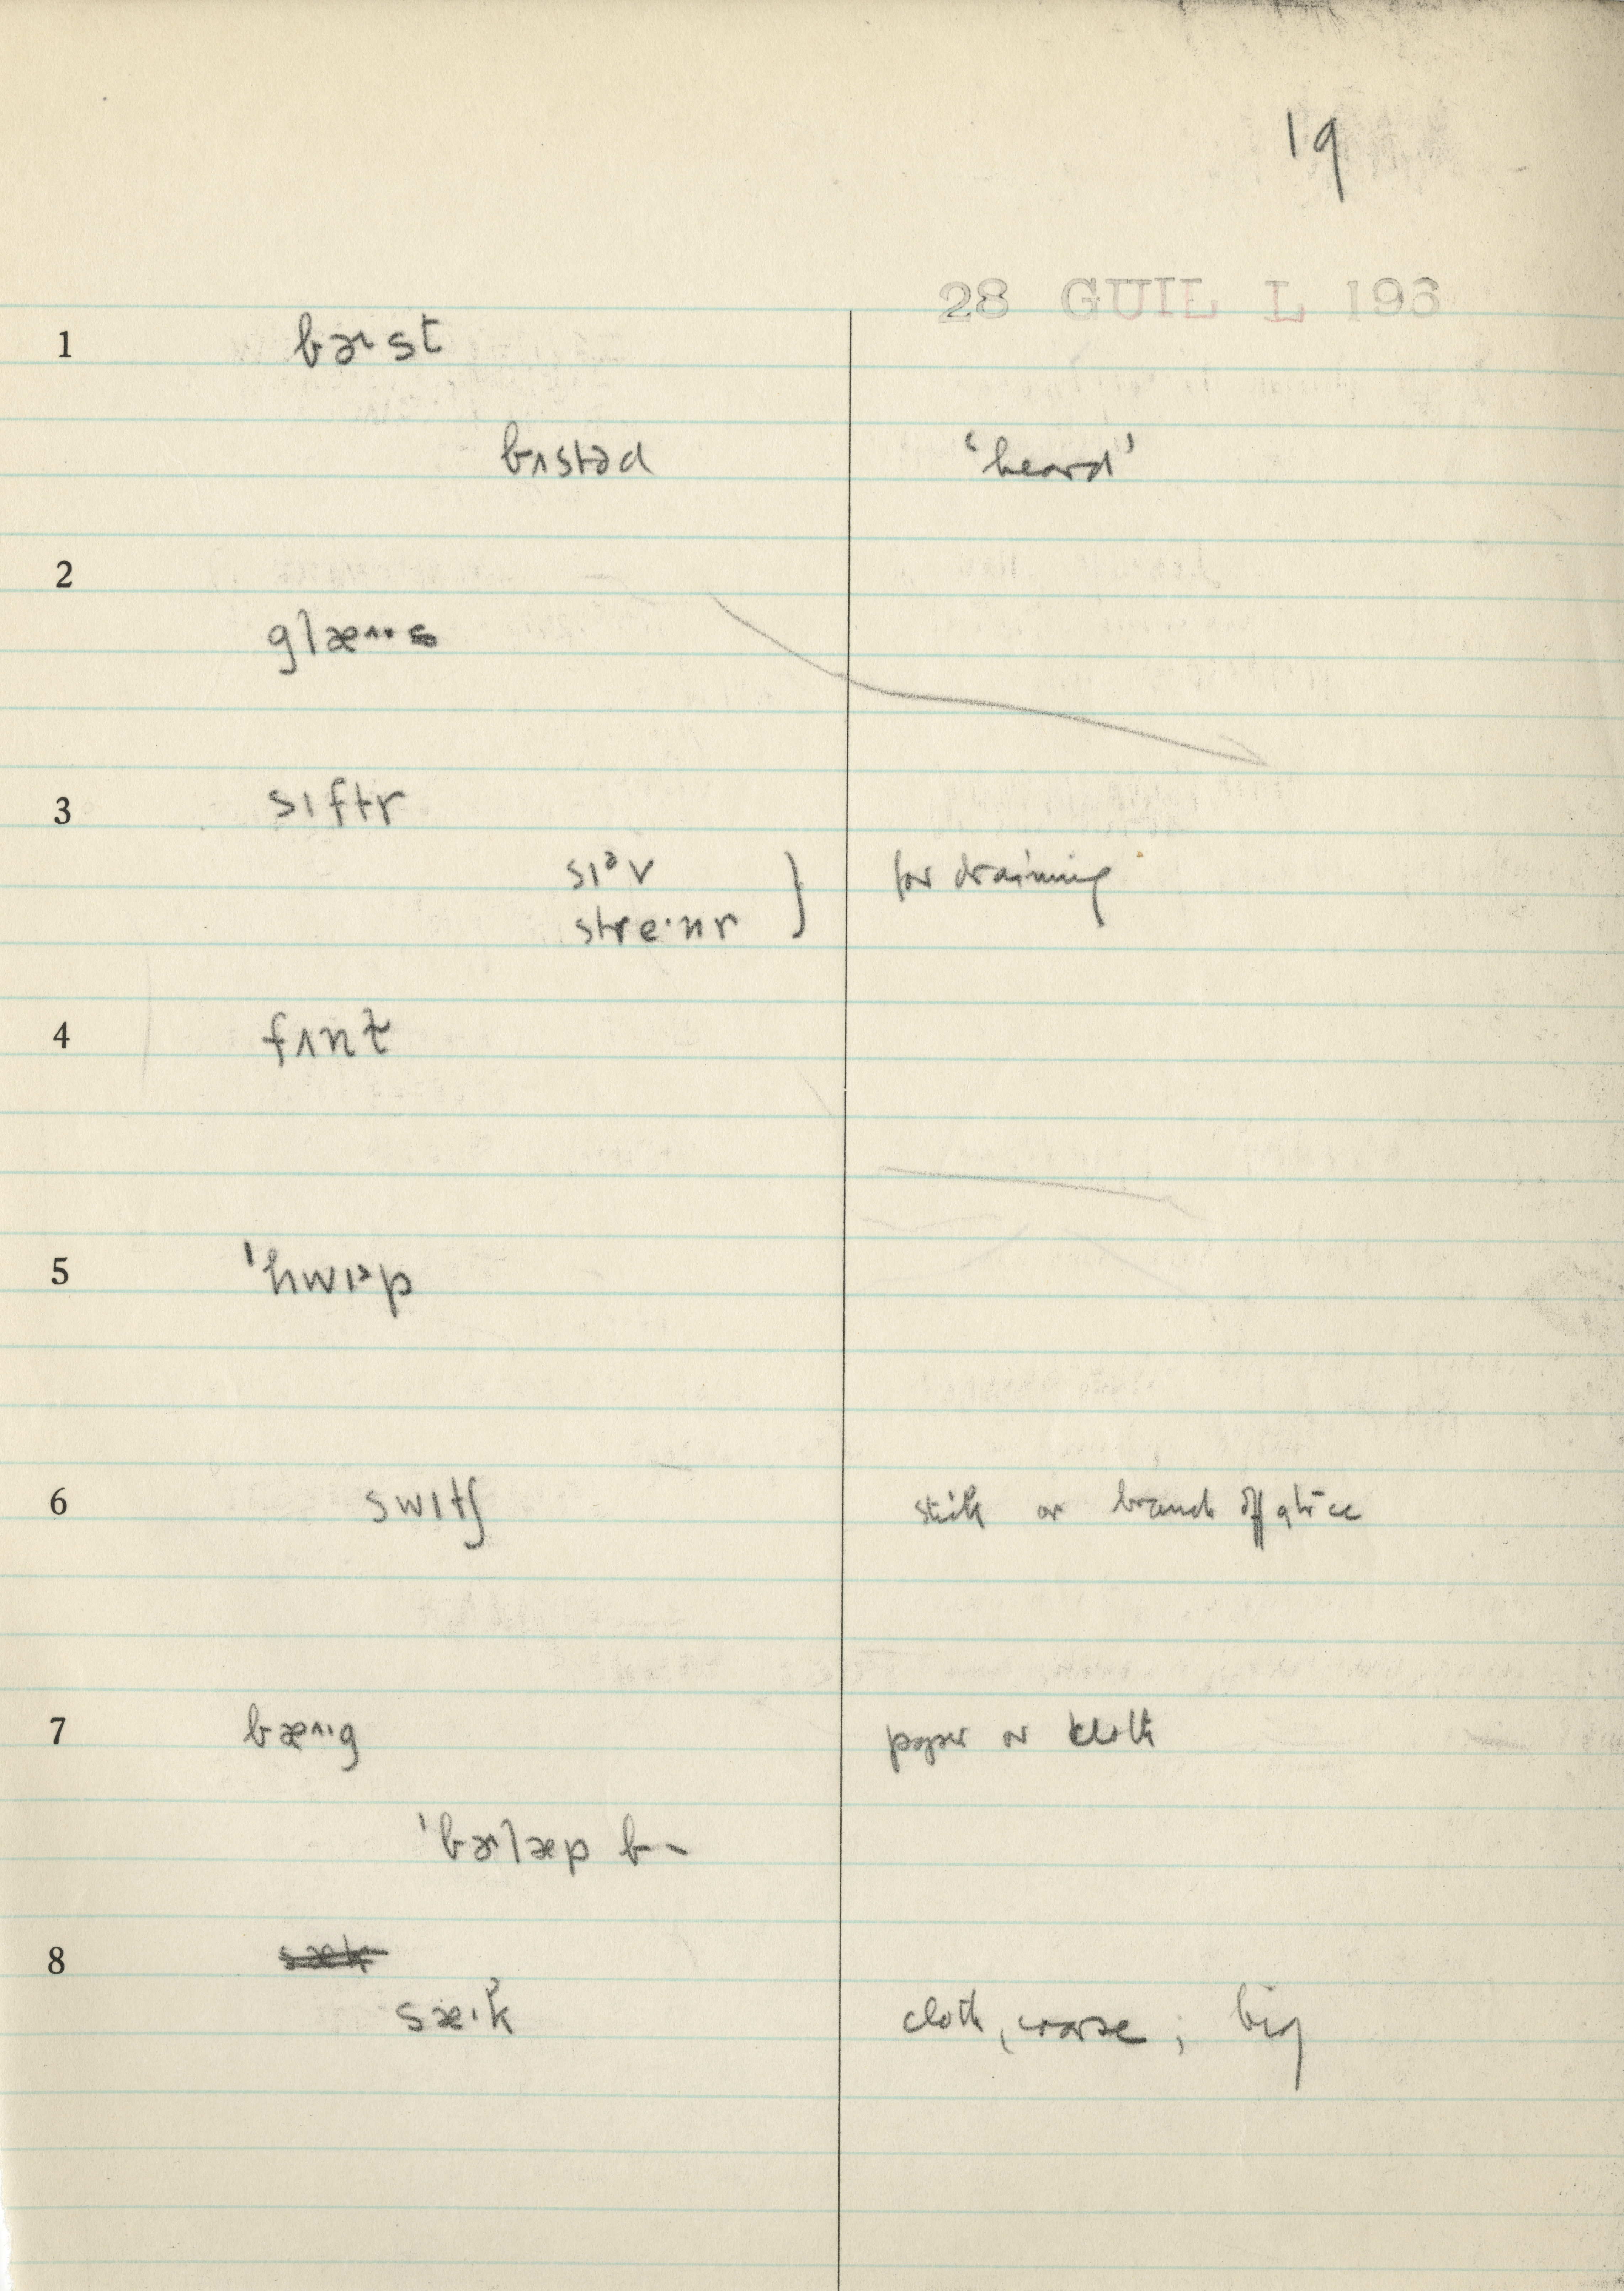 19
28 GUIL L 1963
1 bɚst
bʌstəd ‘heard’
2 glæ^··s
3 sɪftr
sɪᵊv } for draining
stre·nr
4 fʌnt̬
5 ˈhwɪəp
6 swɪtʃ stick or branch off a tree
7 bæ^··g paper or cloth
ˈbɚlæp b-
8 sæk
sæ·k cloth, coarse; big